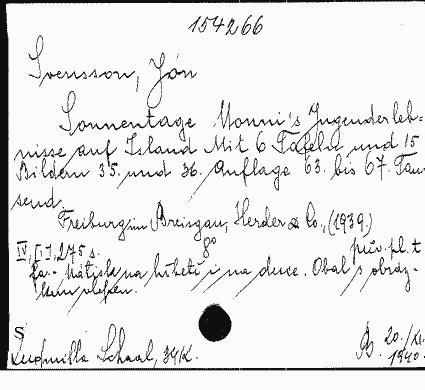 154266
Svensson, Jón
Sonnentage Nonni's Jugenderleb-
nisse auf Island Mit 6 Tafeln und 15
Bildern 35. und 36. Auflage 63. bis 67. Tau-
send.
Freiburg im Breisgau, Herder & Co., (1939.)
IV, [I], 275 s. 8° pův. pl. t
na hřbetě i na desce. Obal s obráz-
kem
S
Ludmilla Schaal, 34K.
B. 20./XI.
1940.